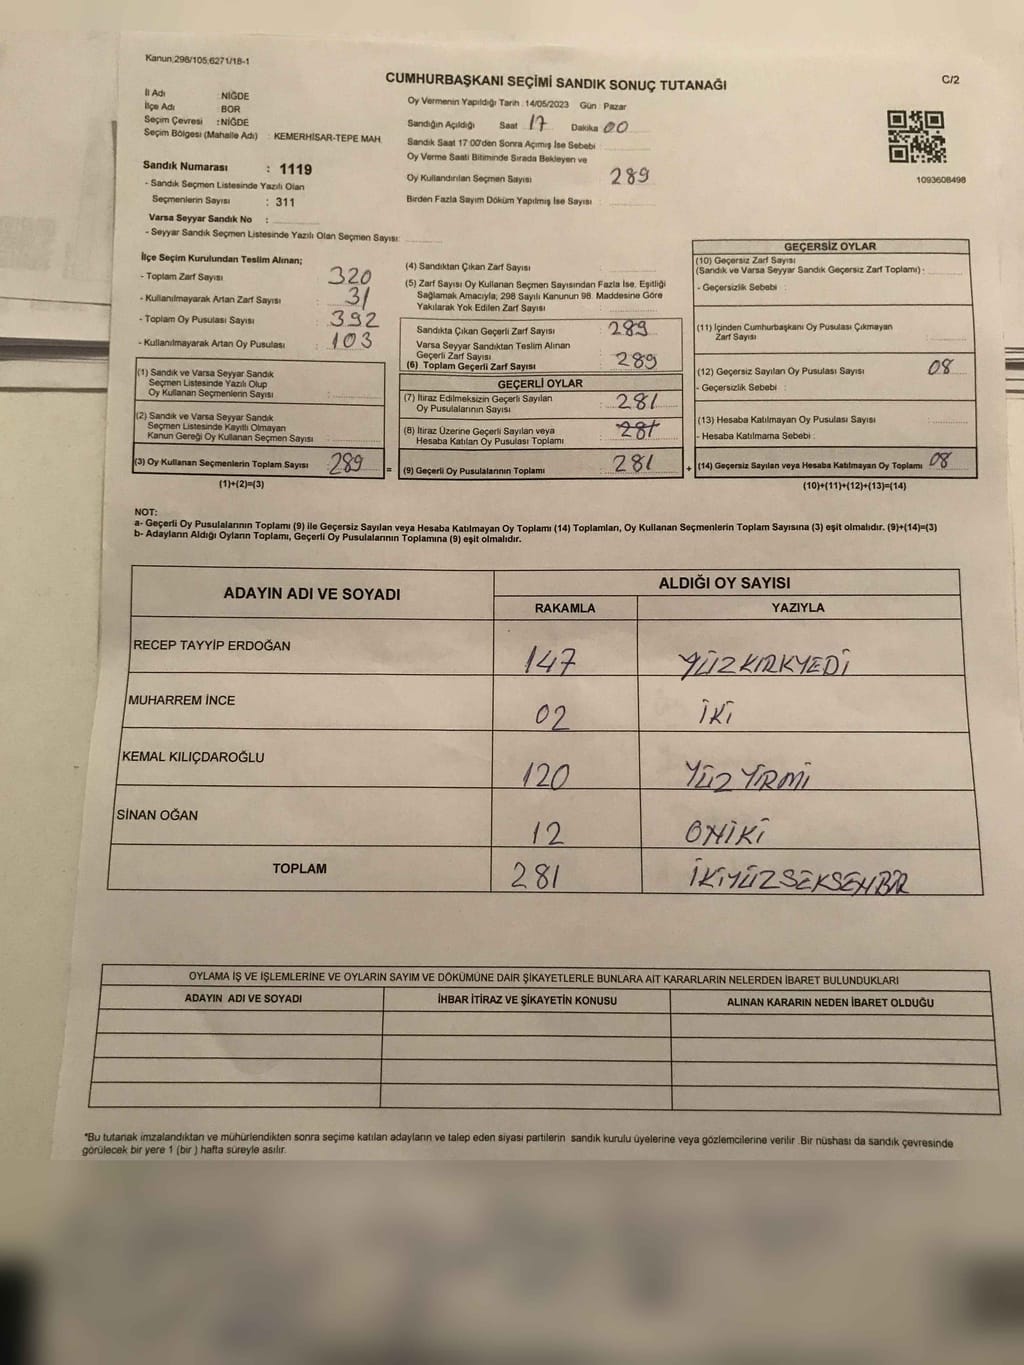 Kanun;298/105;6271/18-1
C/2
CUMHURBAŞKANI SEÇİMİ SANDIK SONUÇ TUTANAĞI
İl Adı : NİĞDE
İlçe Adı : BOR
Seçim Çevresi : NİĞDE
Seçim Bölgesi (Mahalle Adı) : KEMERHİSAR-TEPE MAH.
Sandık Numarası : 1119
- Sandık Seçmen Listesinde Yazılı Olan
Seçmenlerin Sayısı : 311
Varsa Seyyar Sandık No :
- Seyyar Sandık Seçmen Listesinde Yazılı Olan Seçmen Sayısı:
Oy Vermenin Yapıldığı Tarih : 14/05/2023 Gün : Pazar
Sandığın Açıldığı Saat 17 Dakika 00
Sandık Saat 17:00'den Sonra Açımış İse Sebebi
Oy Verme Saati Bitiminde Sırada Bekleyen ve
Oy Kullandırılan Seçmen Sayısı 289
Birden Fazla Sayım Döküm Yapılmış İse Sayısı :
1093608498
İlçe Seçim Kurulundan Teslim Alınan;
- Toplam Zarf Sayısı : 320
- Kullanılmayarak Artan Zarf Sayısı : 31
- Toplam Oy Pusulası Sayısı : 392
- Kullanılmayarak Artan Oy Pusulası : 103
(1) Sandık ve Varsa Seyyar Sandık
Seçmen Listesinde Yazılı Olup
Oy Kullanan Seçmenlerin Sayısı :
(2) Sandık ve Varsa Seyyar Sandık
Seçmen Listesinde Kayıtlı Olmayan
Kanun Gereği Oy Kullanan Seçmen Sayısı :
(3) Oy Kullanan Seçmenlerin Toplam Sayısı : 289 =
(1)+(2)=(3)
(4) Sandıktan Çıkan Zarf Sayısı :
(5) Zarf Sayısı Oy Kullanan Seçmen Sayısından Fazla İse, Eşitliği
Sağlamak Amacıyla; 298 Sayılı Kanunun 98. Maddesine Göre
Yakılarak Yok Edilen Zarf Sayısı :
Sandıkta Çıkan Geçerli Zarf Sayısı : 289
Varsa Seyyar Sandıktan Teslim Alınan
Geçerli Zarf Sayısı
(6) Toplam Geçerli Zarf Sayısı : 289
GEÇERLİ OYLAR
(7) İtiraz Edilmeksizin Geçerli Sayılan
Oy Pusulalarının Sayısı : 281
(8) İtiraz Üzerine Geçerli Sayılan veya
Hesaba Katılan Oy Pusulası Toplamı : 281
(9) Geçerli Oy Pusulalarının Toplamı : 281 +
GEÇERSİZ OYLAR
(10) Geçersiz Zarf Sayısı
(Sandık ve Varsa Seyyar Sandık Geçersiz Zarf Toplamı) :
- Geçersizlik Sebebi :
(11) İçinden Cumhurbaşkanı Oy Pusulası Çıkmayan
Zarf Sayısı :
(12) Geçersiz Sayılan Oy Pusulası Sayısı : 08
- Geçersizlik Sebebi :
(13) Hesaba Katılmayan Oy Pusulası Sayısı :
- Hesaba Katılmama Sebebi :
(14) Geçersiz Sayılan veya Hesaba Katılmayan Oy Toplamı : 08
(10)+(11)+(12)+(13)=(14)
NOT:
a- Geçerli Oy Pusulalarının Toplamı (9) ile Geçersiz Sayılan veya Hesaba Katılmayan Oy Toplamı (14) Toplamları, Oy Kullanan Seçmenlerin Toplam Sayısına (3) eşit olmalıdır. (9)+(14)=(3)
b- Adayların Aldığı Oyların Toplamı, Geçerli Oy Pusulalarının Toplamına (9) eşit olmalıdır.
ADAYIN ADI VE SOYADI
ALDIĞI OY SAYISI
RAKAMLA YAZIYLA
RECEP TAYYİP ERDOĞAN 147 YÜZKIRKYEDİ
MUHARREM İNCE 02 İKİ
KEMAL KILIÇDAROĞLU 120 YÜZ YİRMİ
SİNAN OĞAN 12 ONİKİ
TOPLAM 281 İKİYÜZSEKSENBİR
OYLAMA İŞ VE İŞLEMLERİNE VE OYLARIN SAYIM VE DÖKÜMÜNE DAİR ŞİKAYETLERLE BUNLARA AİT KARARLARIN NELERDEN İBARET BULUNDUKLARI
ADAYIN ADI VE SOYADI İHBAR İTİRAZ VE ŞİKAYETİN KONUSU ALINAN KARARIN NEDEN İBARET OLDUĞU
*Bu tutanak imzalandıktan ve mühürlendikten sonra seçime katılan adayların ve talep eden siyasi partilerin sandık kurulu üyelerine veya gözlemcilerine verilir .Bir nüshası da sandık çevresinde
görülecek bir yere 1 (bir ) hafta süreyle asılır.